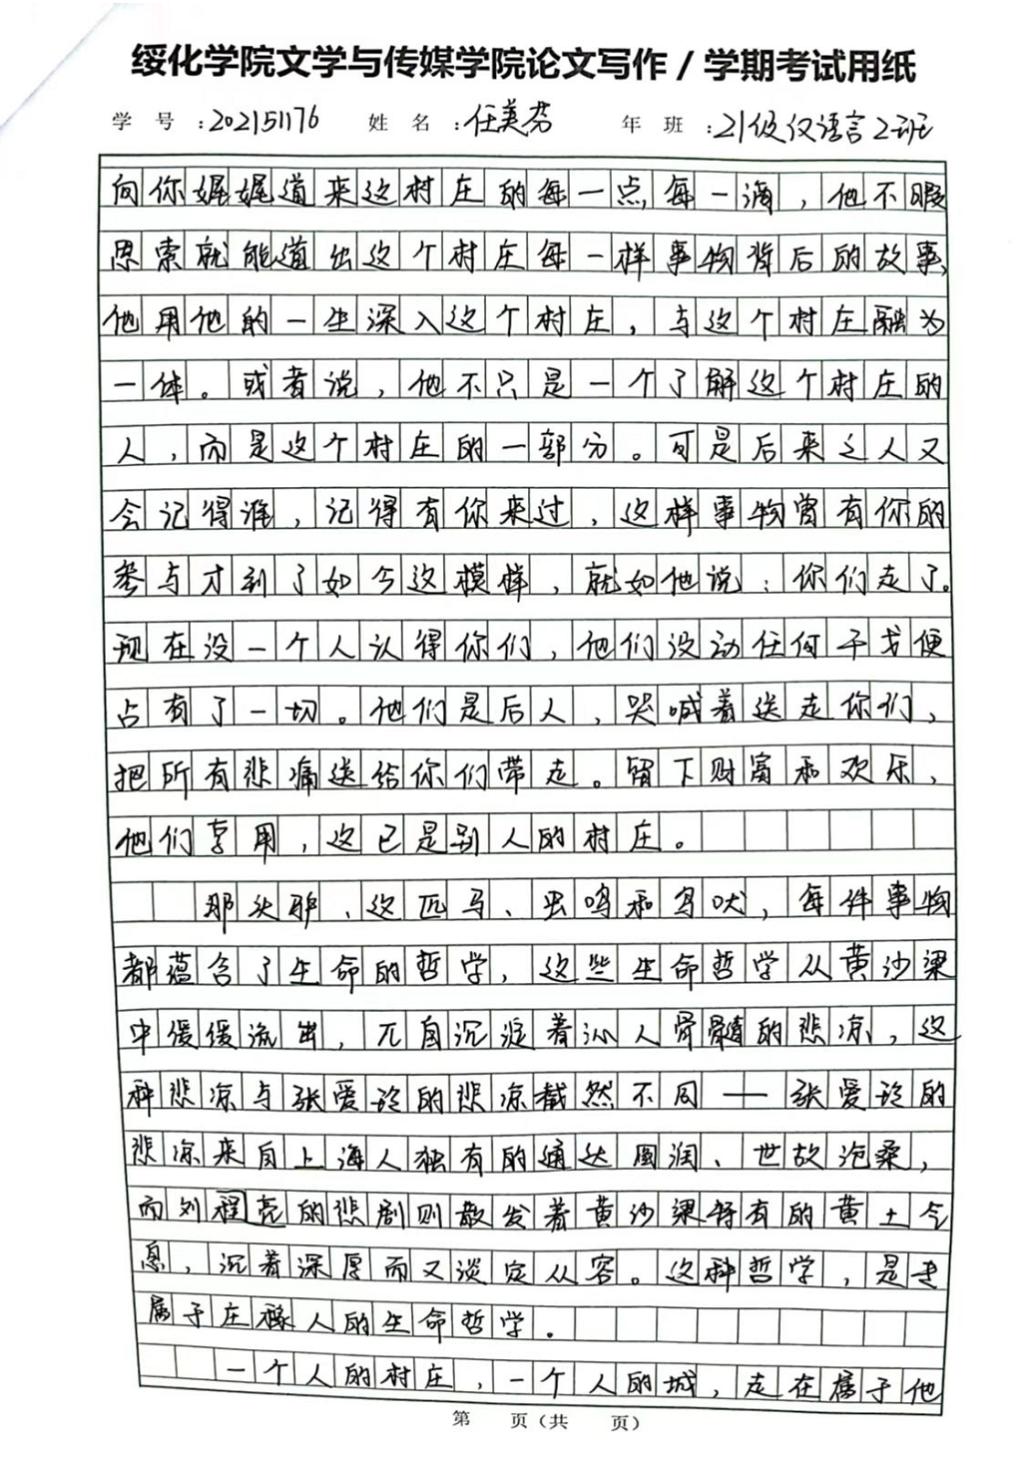 绥化学院文学与传媒学院论文写作/学期考试用纸
学号:202151176 姓名:任美芬 年班:21级汉语言2班
向你娓娓道来这村庄的每一点每一滴，他不暇
思索就能道出这个村庄每一样事物背后的故事，
他用他的一生深入这个村庄，与这个村庄融为
一体。或者说，他不只是一个了解这个村庄的
人，而是这个村庄的一部分。可是后来之人又
会记得谁，记得有你来过，这样事物曾有你的
参与才到了如今这模样，就如他说：你们走了。
现在没一个人认得你们，他们没动任何干戈便
占有了一切。他们是后人，哭喊着送走你们，
把所有悲痛送给你们带走。留下财富和欢乐，
他们享用，这已是别人的村庄。
那头驴、这匹马、虫鸣和鸟吠，每件事物
都蕴含了生命的哲学，这些生命哲学从黄沙梁
中缓缓流出，兀自沉淀着沁人骨髓的悲凉，这
种悲凉与张爱玲的悲凉截然不同——张爱玲的
悲凉来自上海人独有的通达圆润、世故沧桑，
而刘程亮的悲剧则散发着黄沙梁特有的黄土气
息，沉着深厚而又淡定从容。这种哲学，是专
属于庄稼人的生命哲学。
一个人的村庄，一个人的城，走在属于他
第 页(共 页)